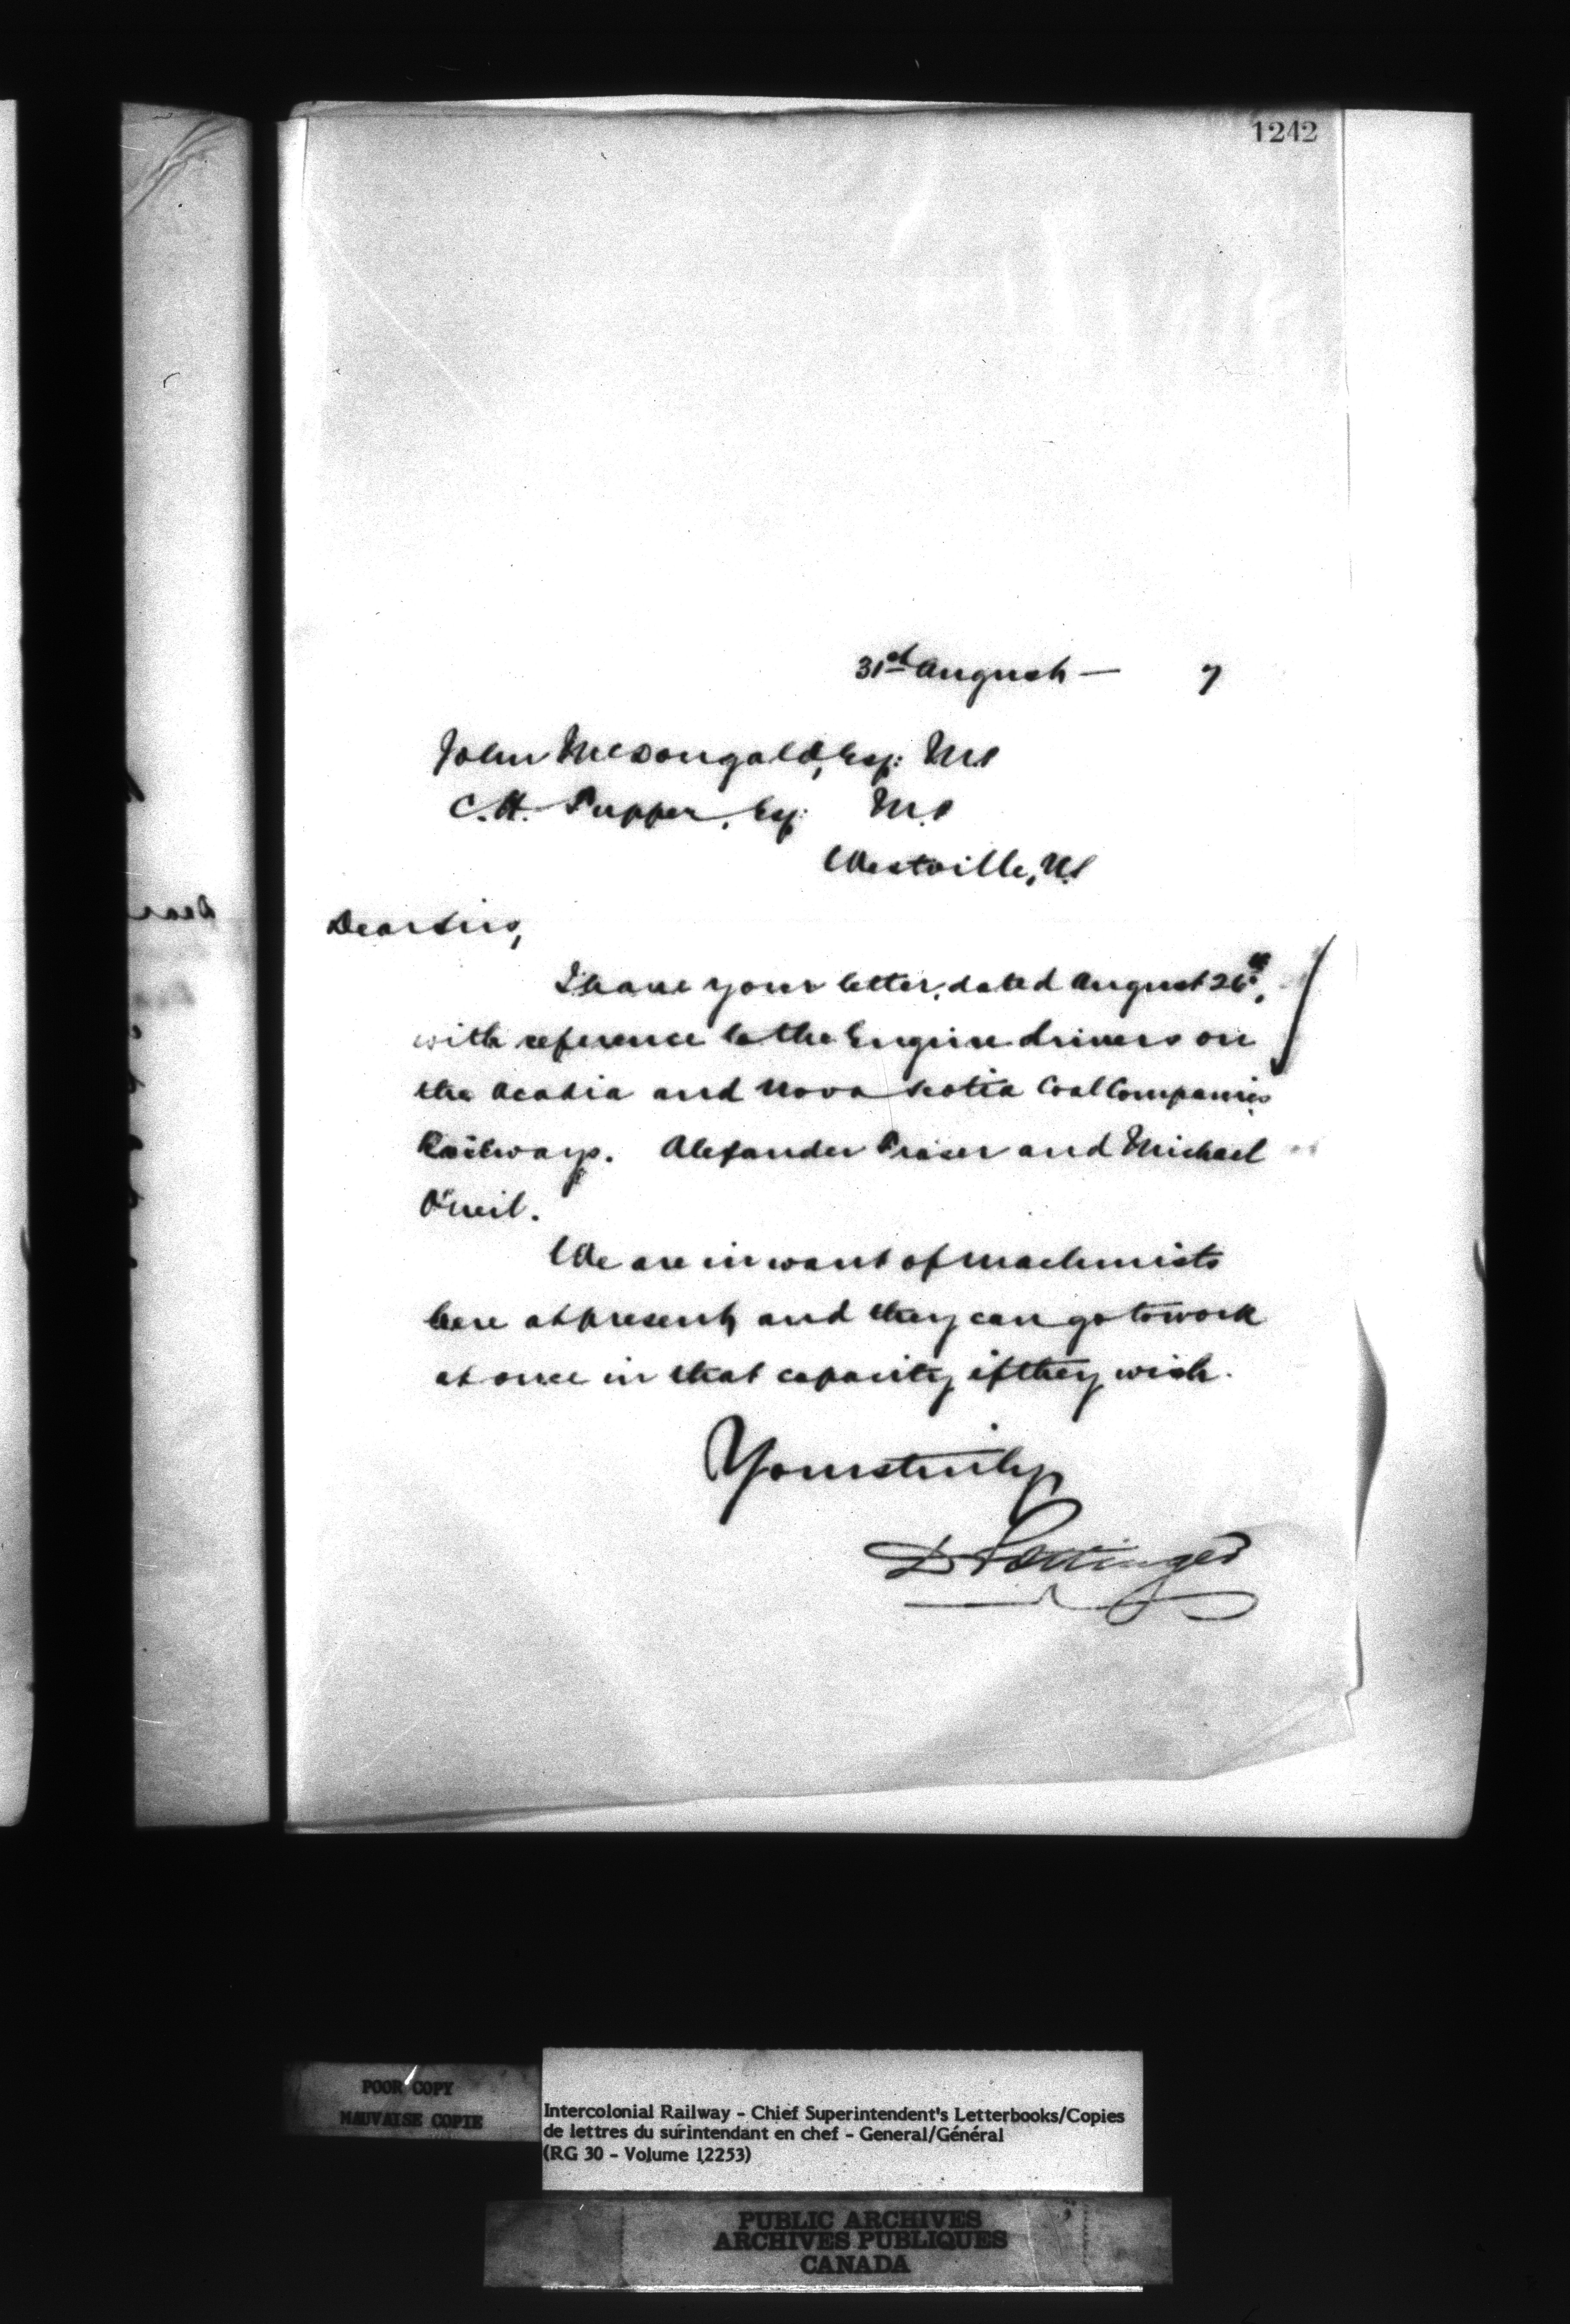 1242
31st August — 7
John McDougald, Esq: M.P
C.H. Tupper, Esq: M.P
Westville, N.S
Dear Sirs,
I have your letter, dated August 26th,
with reference to the Engine drivers on
the Acadia and Nova Scotia Coal Companies
Railways. Alexander Fraser and Michael
O'neil.
We are in want of machinists
here at present, and they can go to work
at once in that capacity if they wish.
Yours truly
D Pottinger
Dear
POOR COPY
MAUVAISE COPIE
Intercolonial Railway - Chief Superintendent's Letterbooks/Copies
de lettres du surintendant en chef - General/Général
(RG 30 - Volume 12253)
PUBLIC ARCHIVES
ARCHIVES PUBLIQUES
CANADA